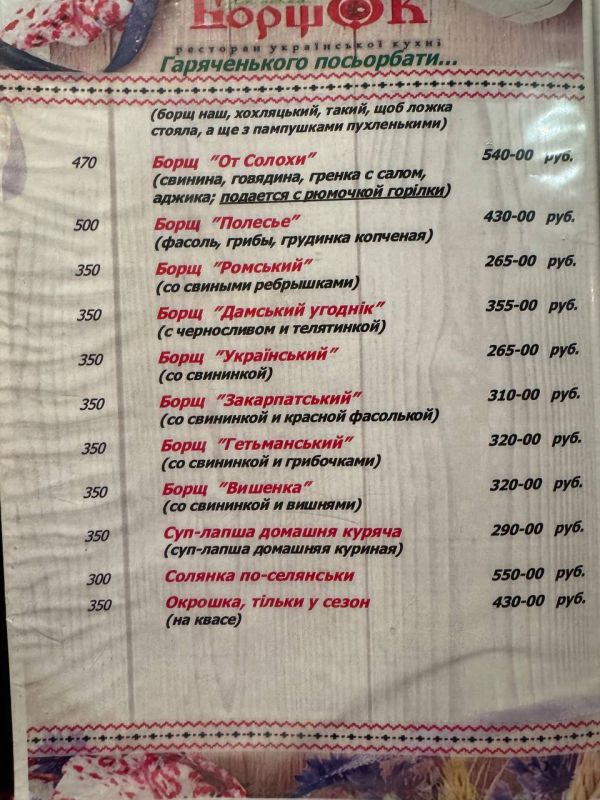 БорщОк
ресторан української кухні
Гаряченького посьорбати...
(борщ наш, хохляцький, такий, щоб ложка
стояла, а ще з пампушками пухленькими)
470 Борщ "От Солохи" 540-00 руб.
(свинина, говядина, гренка с салом,
аджика; подается с рюмочкой горілки)
500 Борщ "Полесье" 430-00 руб.
(фасоль, грибы, грудинка копченая)
350 Борщ "Ромський" 265-00 руб.
(со свиными ребрышками)
350 Борщ "Дамський угоднік" 355-00 руб.
(с черносливом и телятинкой)
350 Борщ "Український" 265-00 руб.
(со свининкой)
350 Борщ "Закарпатський" 310-00 руб.
(со свининкой и красной фасолькой)
350 Борщ "Гетьманський" 320-00 руб.
(со свининкой и грибочками)
350 Борщ "Вишенка" 320-00 руб.
(со свининкой и вишнями)
350 Суп-лапша домашня куряча 290-00 руб.
(суп-лапша домашняя куриная)
300 Солянка по-селянськи 550-00 руб.
350 Окрошка, тільки у сезон 430-00 руб.
(на квасе)